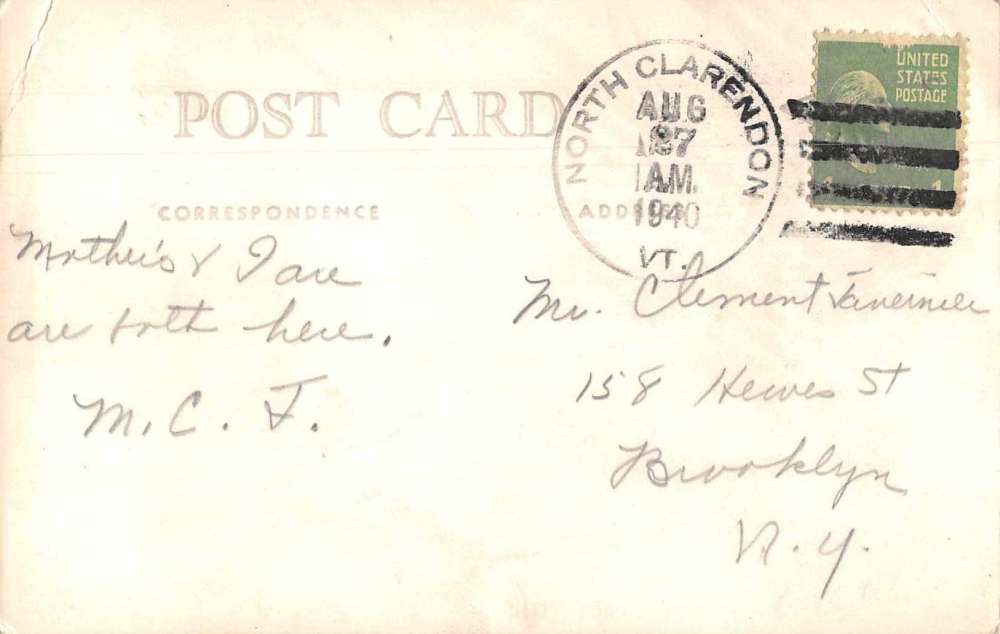 POST CARD
CORRESPONDENCE
ADDRESS
NORTH CLARENDON
AUG
27
AM
1940
VT.
UNITED
STATES
POSTAGE
1
Mother's & I are
are both here.
M. C. T.
Mr. Clement Tavernier
158 Hewes St
Brooklyn
N. Y.